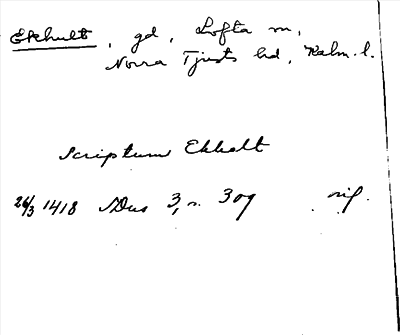 Ekhult, gd, Lofta sn,
Norra Tjusts hd, Kalm. l.
Scriptum Ekhalt
26/3 1418 SDns 3, s. 309